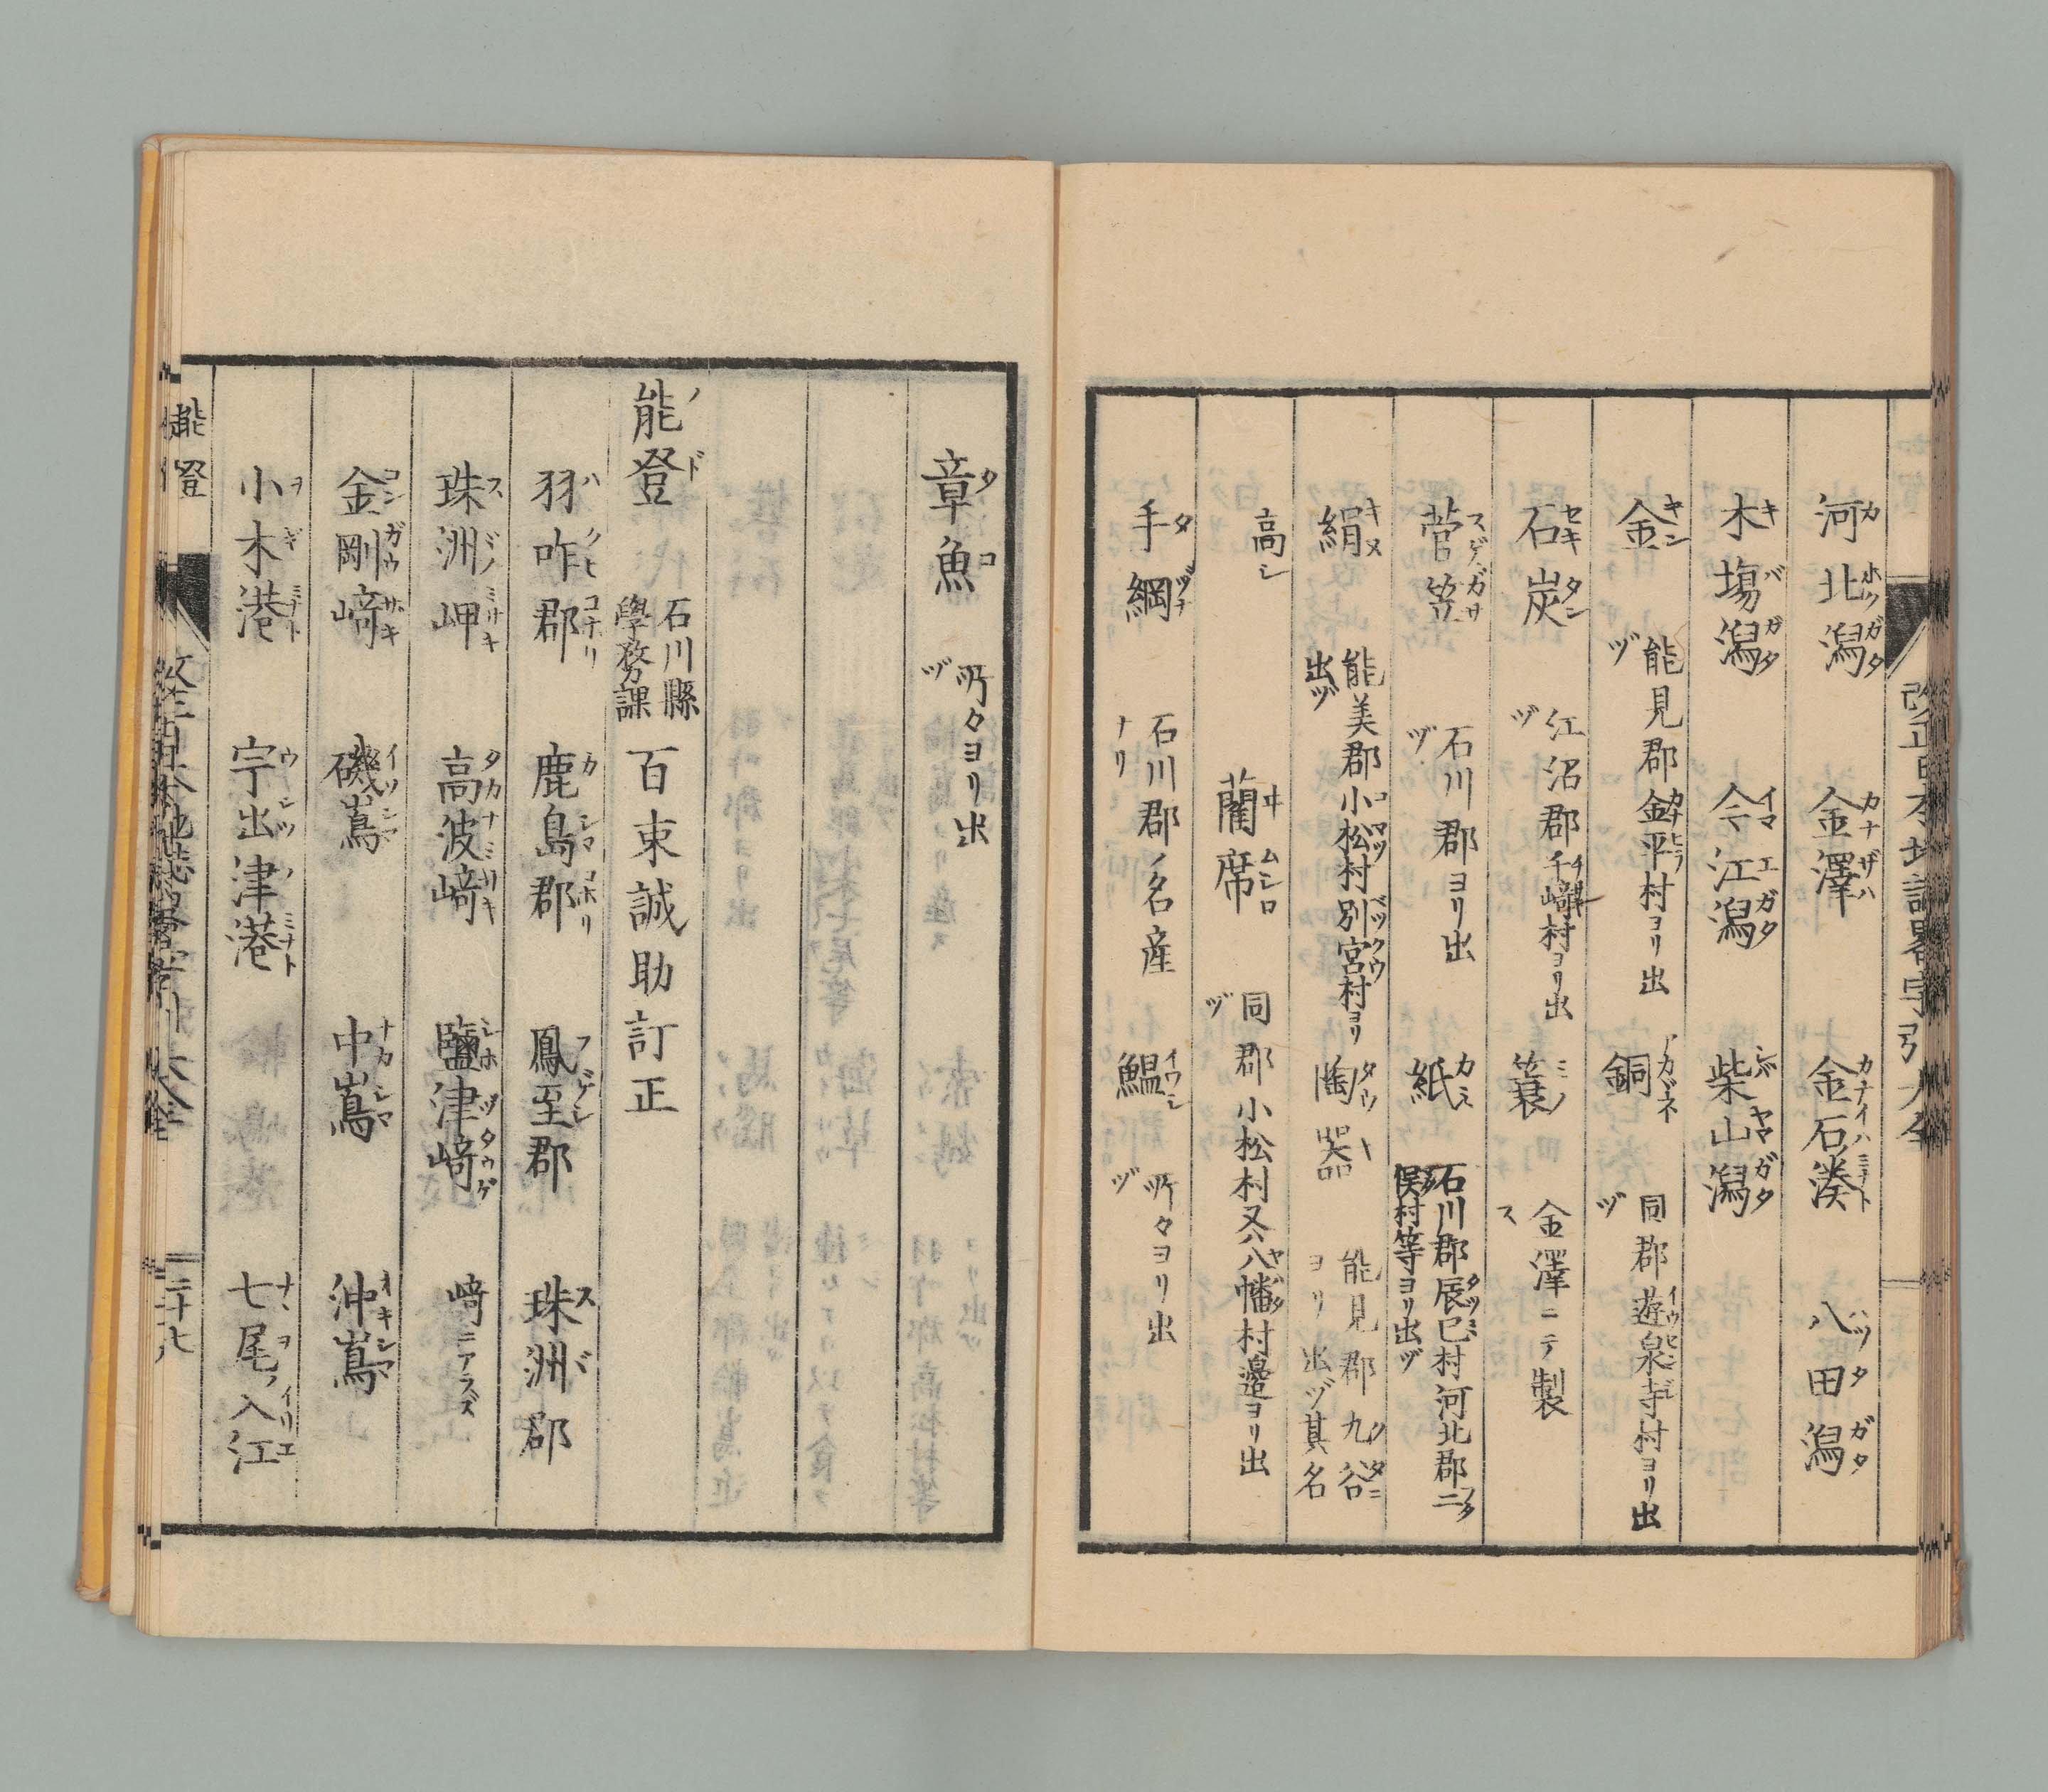 河北潟 金澤 金石湊 八田潟
木塲潟 今江潟 柴山潟
金 能見郡金平村ヨリ出ヅ 銅 同郡遊泉寺村ヨリ出ヅ
石炭 江沼郡千﨑村ヨリ出ヅ 簑 金澤ニテ製ス
菅笠 石川郡ヨリ出ヅ 紙 石川郡辰巳村河北郡二俣村等ヨリ出ヅ
絹 能美郡小松村別宮村ヨリ出ヅ 陶器 能見郡九谷ヨリ出ヅ其名
高シ 藺席 同郡小松村又八幡村邉ヨリ出ヅ
手綱 石川郡ノ名産ナリ 鰛 所々ヨリ出ヅ
章魚 所々ヨリ出ヅ
能登 石川縣學務課 百束誠助訂正
羽咋郡 鹿島郡 鳳至郡 珠洲郡
珠洲岬 高波﨑 鹽津﨑 﨑ニアラズ
金剛﨑 磯嶌 中嶌 沖嶌
小木港 宇出津港 七尾ノ入江